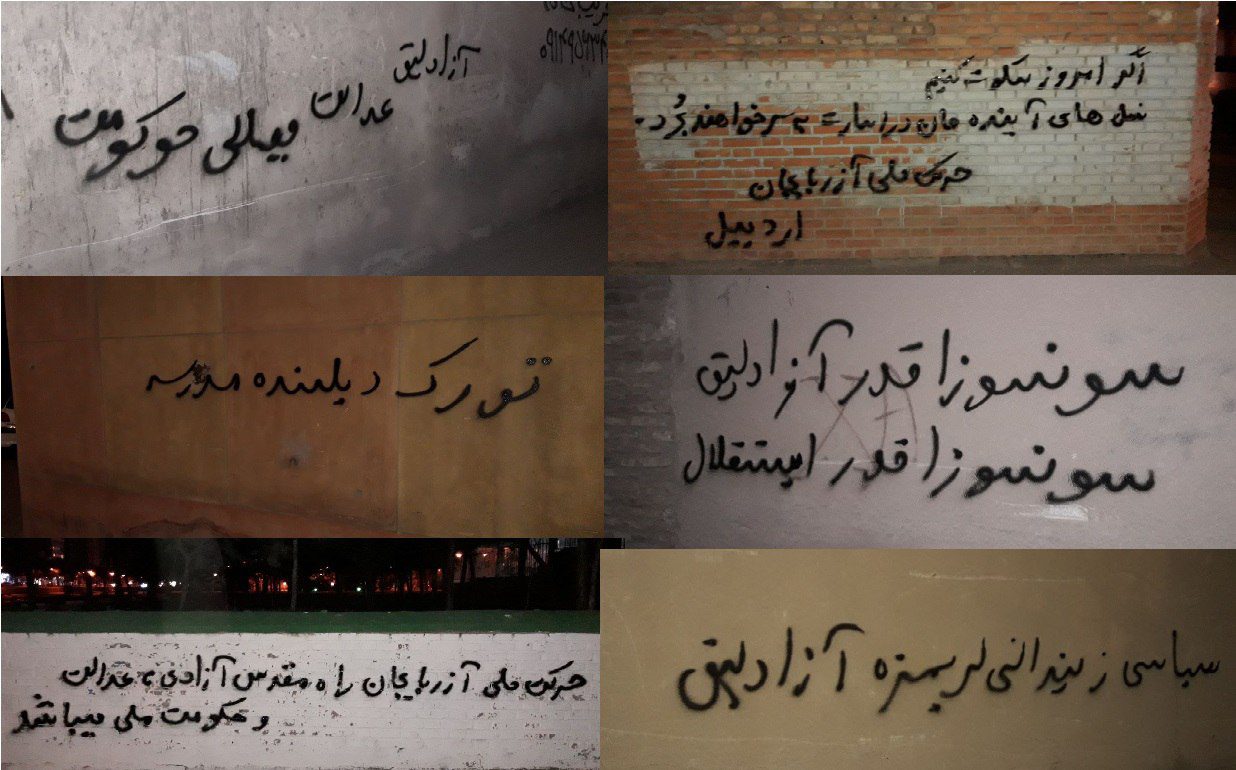 آزادلیق عدالت میللی حوکومت
اگر امروز سکوت کنیم
نسل های آینده مان در اسارت به سر خواهند بُرد.
حرکت ملی آزربایجان
اردبیل
تورک دیلینده مدرسه
سونسوزا قدر آزادلیق
سونسوزا قدر ایستقلال
حرکت ملی آزربایجان راه مقدس آزادی، عدالت
و حکومت ملی میباشد
سیاسی زیندانی لریمیزه آزادلیق